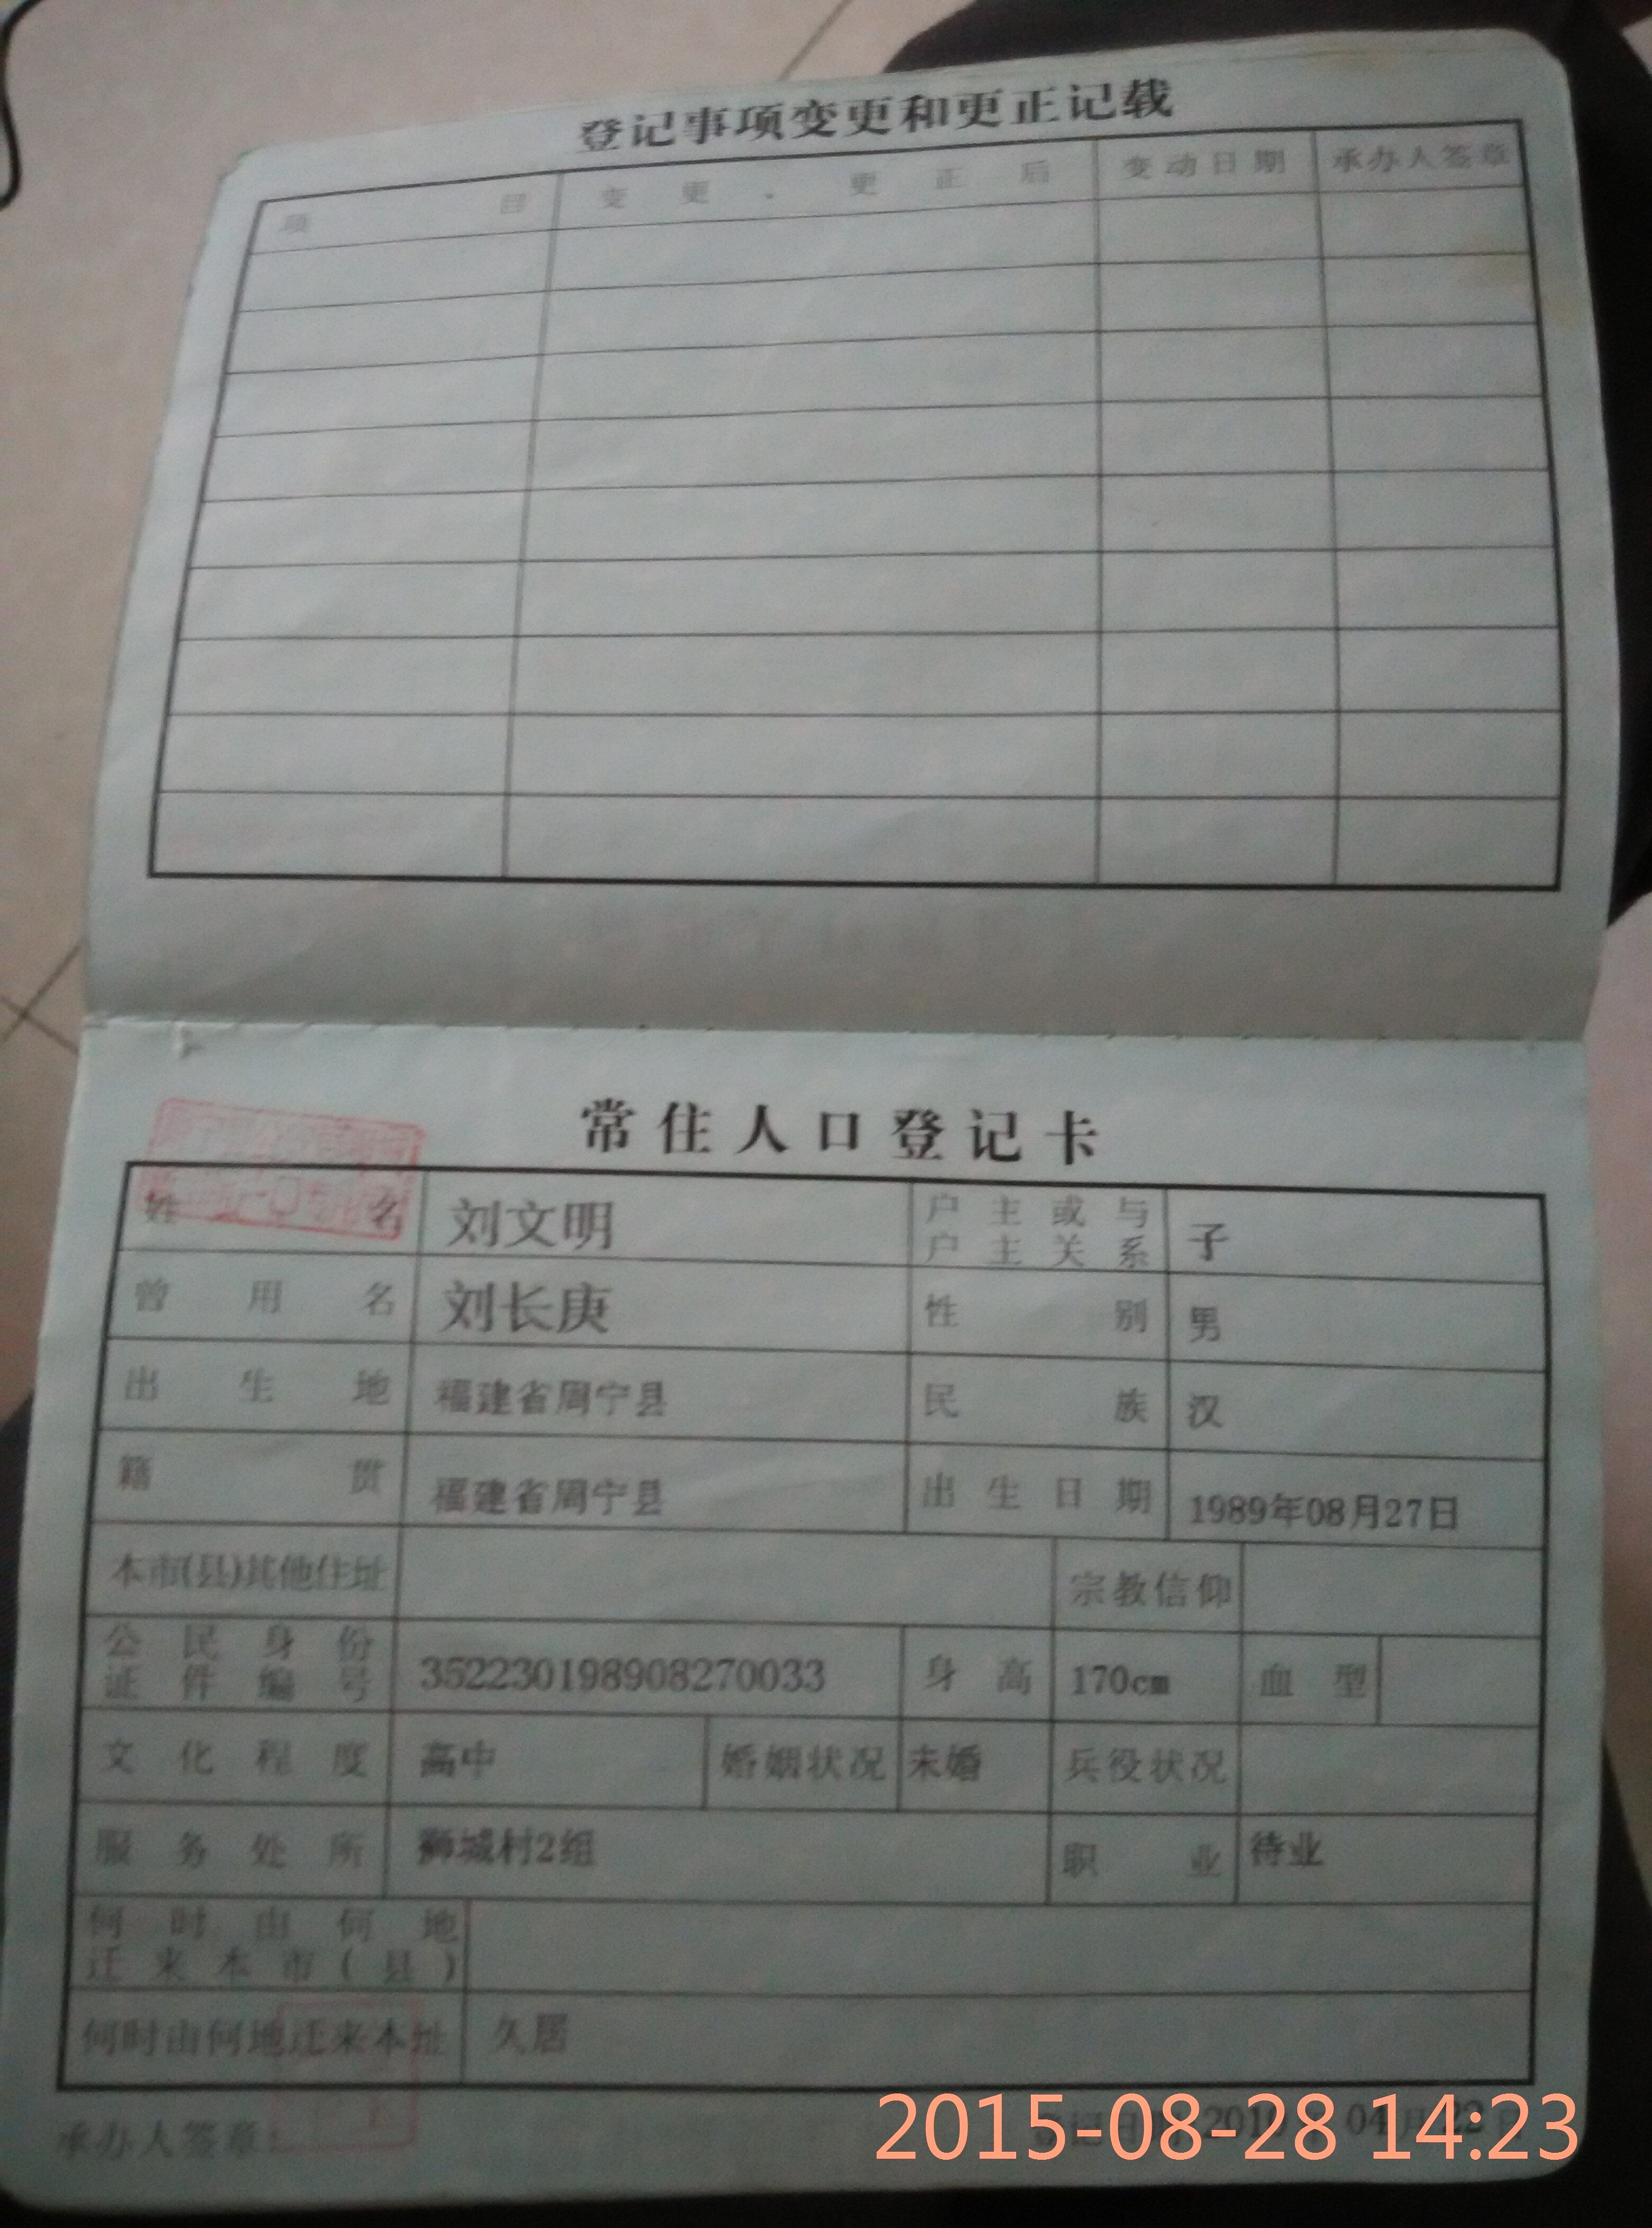 登记事项变更和更正记载
项目 变更、更正后 变动日期 承办人签章
常住人口登记卡
姓名 刘文明 户主或与户主关系 子
曾用名 刘长庚 性别 男
出生地 福建省周宁县 民族 汉
籍贯 福建省周宁县 出生日期 1989年08月27日
本市(县)其他住址 宗教信仰
公民身份证件编号 352230198908270033 身高 170cm 血型
文化程度 高中 婚姻状况 未婚 兵役状况
服务处所 狮城村2组 职业 待业
何时由何地迁来本市(县)
何时由何地迁来本址 久居
承办人签章:
2015-08-28 14:23